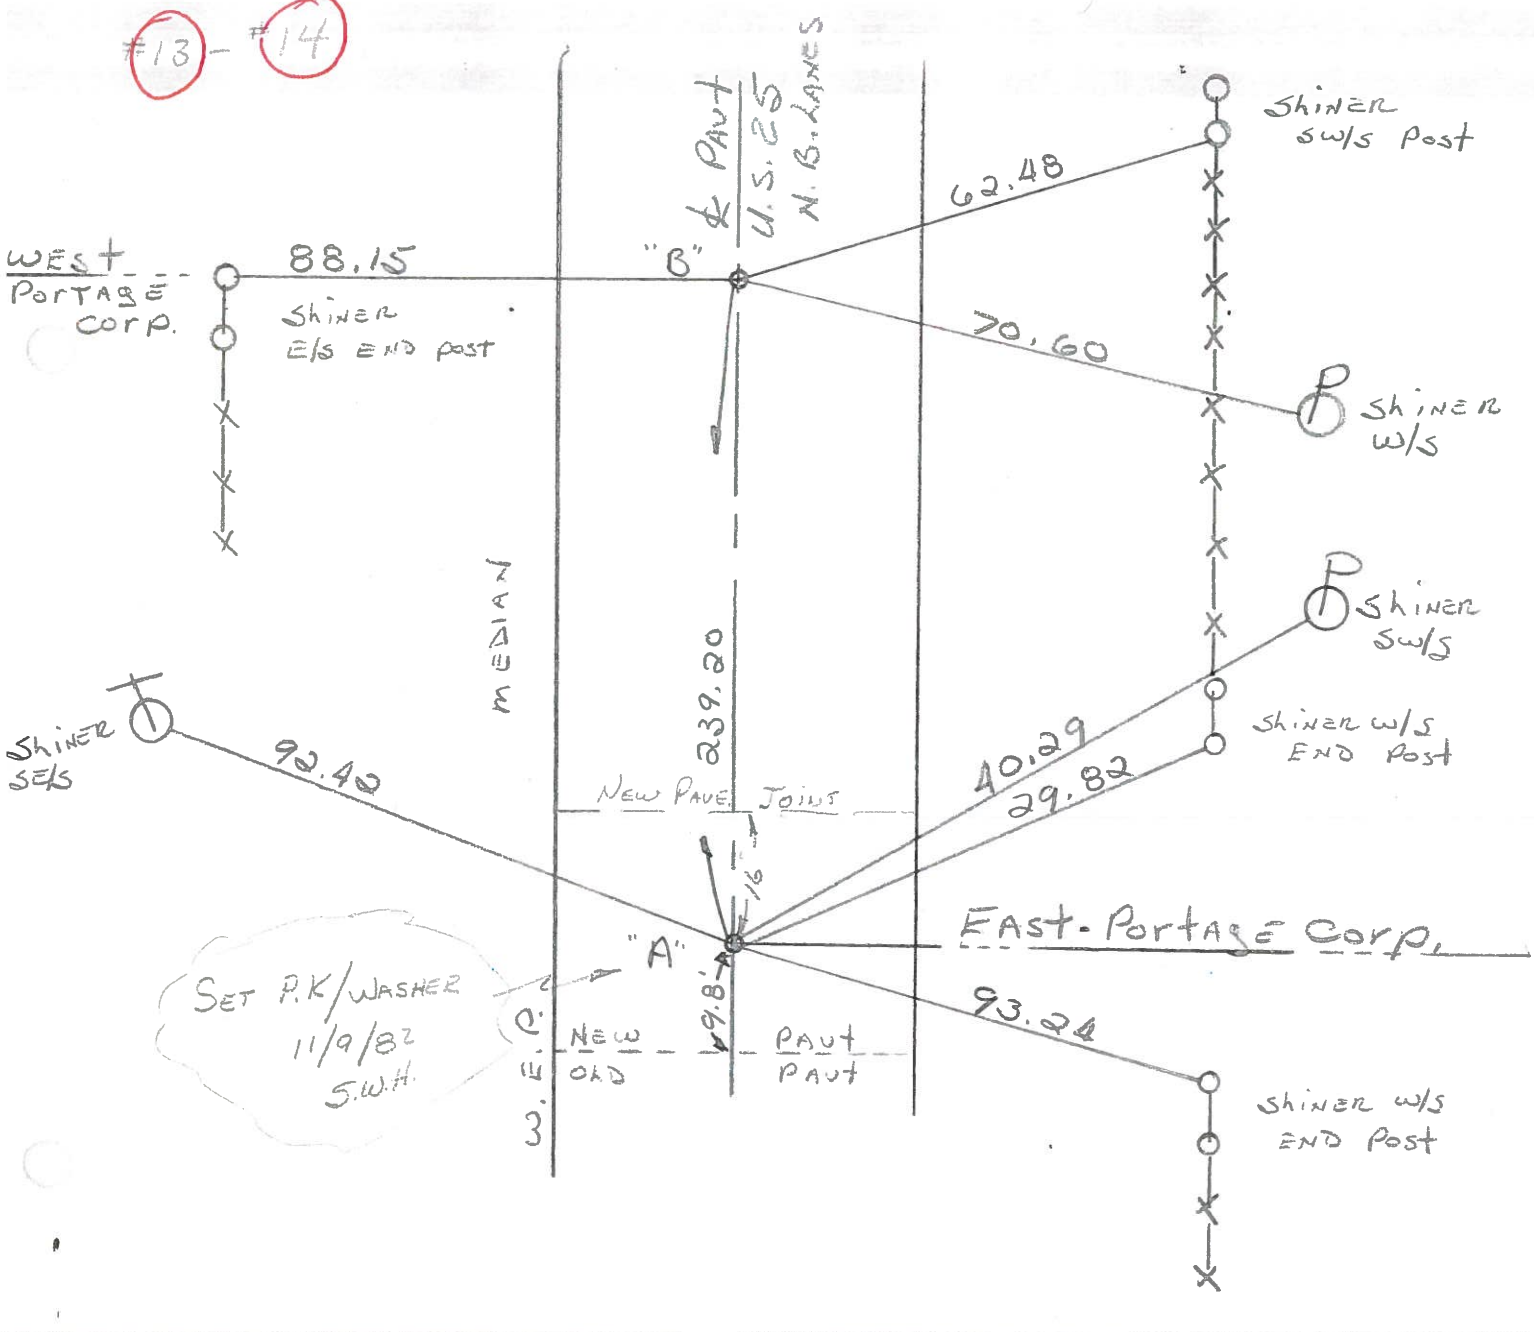 #13 - #14
℄ PAVT
U.S. 25
N.B. LANES
ShiNER
SW/S Post
62.48
WEST
PORTAGE
Corp.
88.15
"B"
ShiNER
E/S END post
70.60
P
ShiNER
W/S
MEDIAN
239.20
P
ShiNER
SW/S
T
ShiNER
SE/S
92.42
40.29
29.82
ShiNER W/S
END Post
NEW PAVE. JOINT
16'
"A"
EAST-PORTAGE Corp.
SET P.K/WASHER
11/9/82
S.W.H.
9.8'
93.24
NEW PAVT
OLD PAVT
ShiNER W/S
END Post